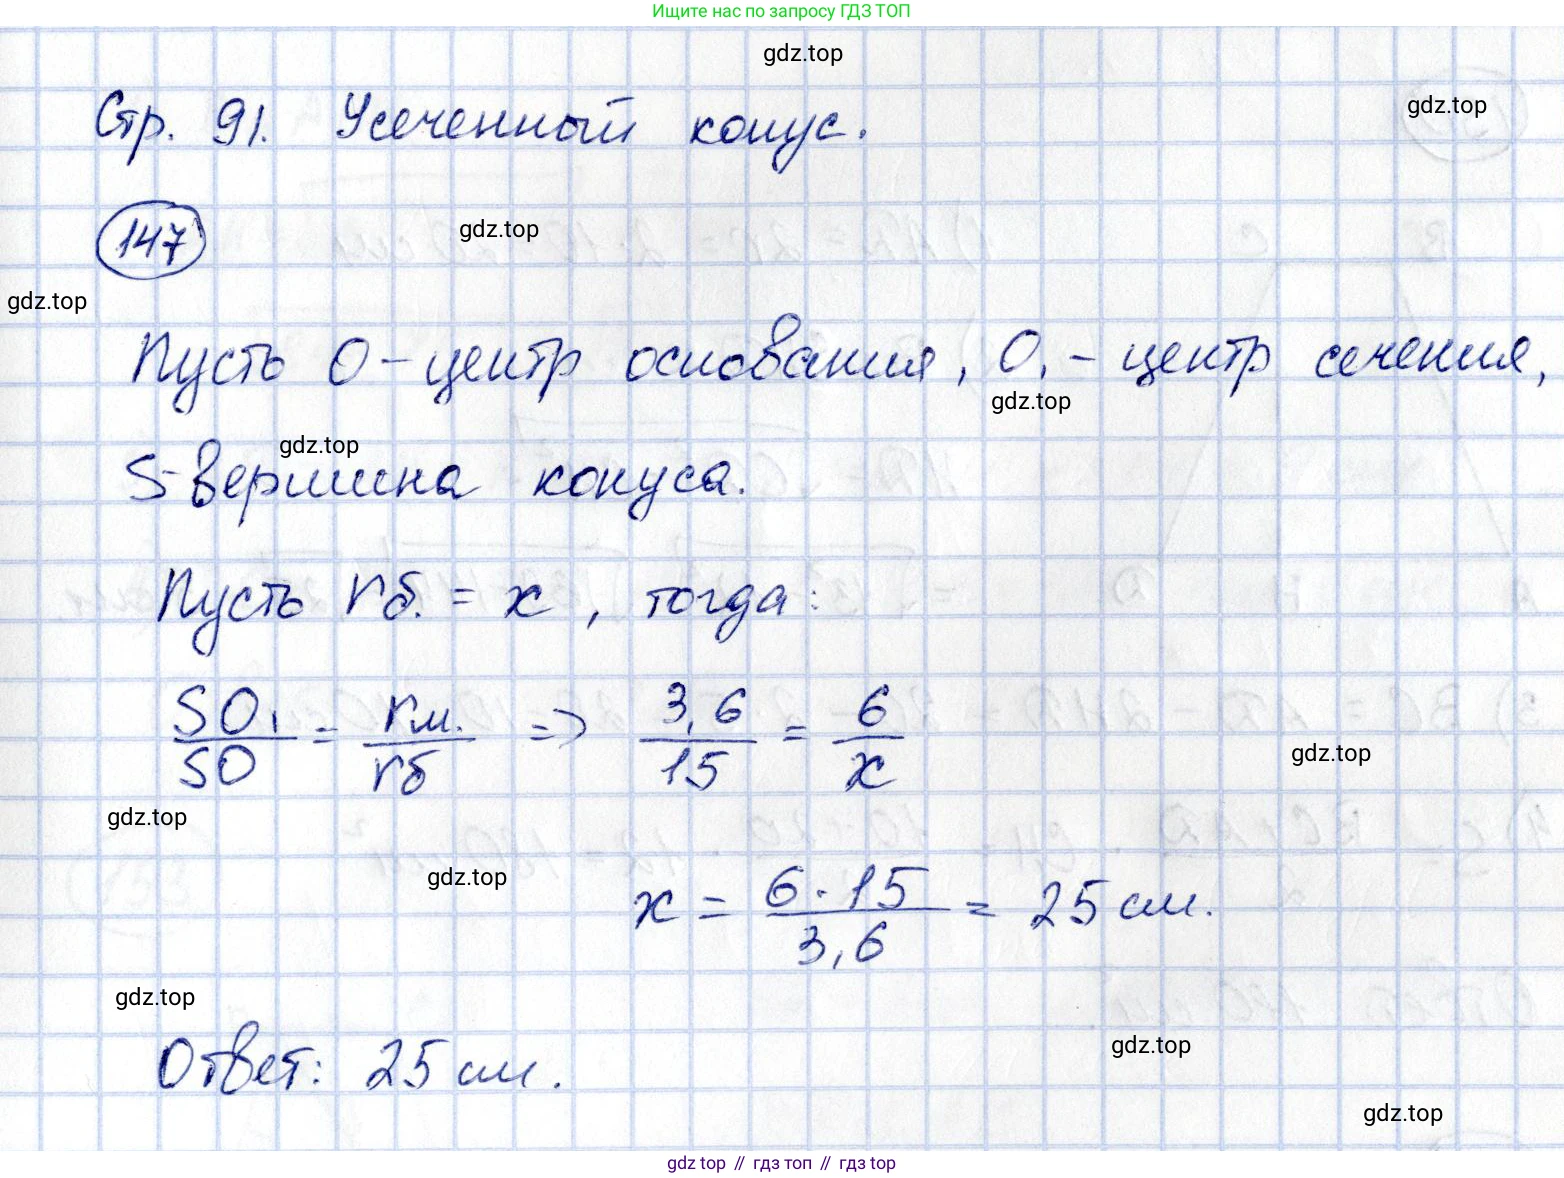 Ищите нас по запросу ГДЗ ТОП
gdz.top
Стр. 91. Усеченный конус.
gdz.top
147
gdz.top
gdz.top
Пусть O – центр основания, O₁ – центр сечения,
gdz.top
gdz.top
S – вершина конуса.
Пусть rб. = x, тогда:
SO₁/SO = rм./rб => 3,6/15 = 6/x
gdz.top
gdz.top
gdz.top
x = 6·15/3,6 = 25 см.
gdz.top
gdz.top
Ответ: 25 см.
gdz.top
gdz top // гдз топ // гдз top